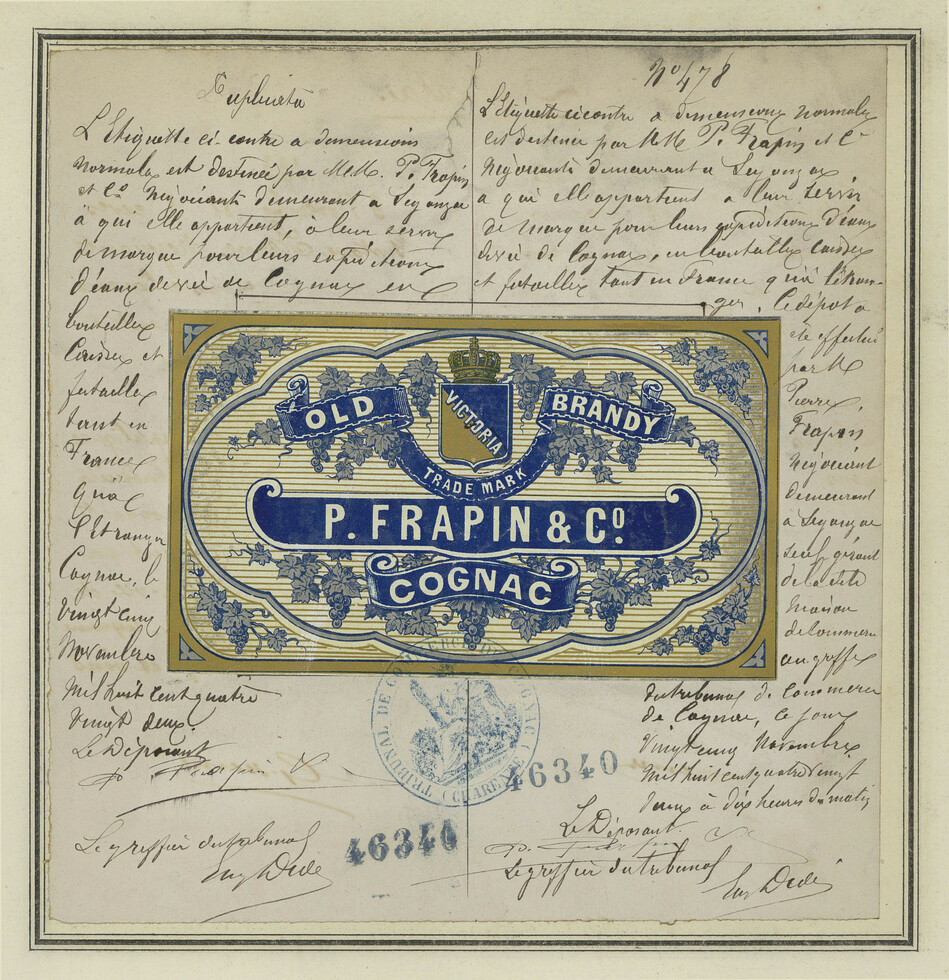 Duplicata
L'Etiquette ci-contre a dimensions
normales est destinée par M.M. P. Frapin
et Co Négociants demeurant a Segonzac
à qui elle appartient, à leur servir
de marque pour leurs expéditions
d'eaux de vie de Cognac en
bouteilles
Caisses et
futailles
tant en
France
qu'à
l'étranger
Cognac, le
Vingt cinq
Novembre
mil huit cent quatre
Vingt deux.
Le Déposant
P. Frapin & Co
Le greffier du tribunal
Eug Dedé
No 478
L'Etiquette ci contre a dimensions normales
est destinée par M M P. Frapin et Ce
Négociants demeurant a Segonzac
a qui elle appartient a leur servir
de marque pour leurs expéditions d'eaux
de vie de Cognac, en bouteilles caisses
et futailles tant en France qu'à l'étran-
ger, le dépot a
été effectué
par M
Pierre
Frapin
Négociant
demeurant
à Segonzac
seul gérant
de la dite
maison
de commerce
au greffe
du tribunal de Commerce
de Cognac, ce jour
Vingt cinq Novembre
mil huit cent quatre vingt
deux à dix heures du matin
Le Déposant.
P. Frapin & Co
Le greffier du tribunal
Eug Dedé
OLD
VICTORIA
BRANDY
TRADE MARK
P. FRAPIN & Co.
COGNAC
TRIBUNAL DE COMMERCE DE COGNAC (CHARENTE)
46340
46340